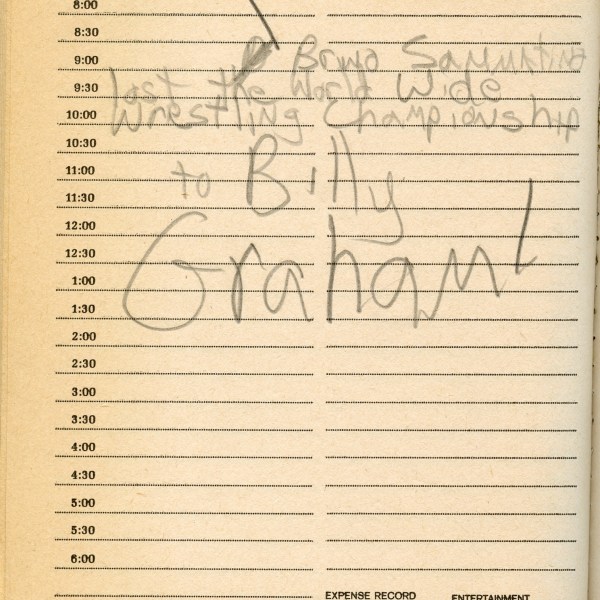 8:00
8:30
Bruno Sammartino
9:00
lost the World Wide
9:30
Wrestling Championship
10:00
10:30
to Billy
11:00
11:30
12:00
Graham
12:30
1:00
1:30
2:00
2:30
3:00
3:30
4:00
4:30
5:00
5:30
6:00
EXPENSE RECORD ENTERTAINMENT